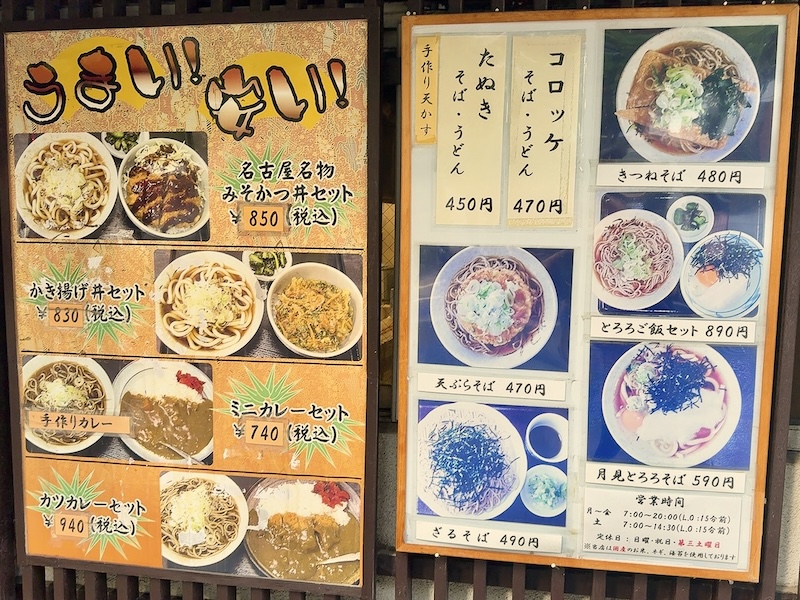 うまい! 安い!
名古屋名物
みそかつ丼セット
850 (税込)
かき揚げ丼セット
830 (税込)
手作りカレー
ミニカレーセット
740 (税込)
カツカレーセット
940 (税込)
手作り天かす
たぬき
そば・うどん
450円
コロッケ
そば・うどん
470円
きつねそば 480円
とろろご飯セット 890円
天ぷらそば 470円
月見とろろそば 590円
ざるそば 490円
営業時間
月～金 7:00~20:00(L,O:15分前)
土 7:00~14:30(L,O:15分前)
定休日:日曜・祝日・第三土曜日
※当店は国産のお米、ネギ、海苔を使用しております